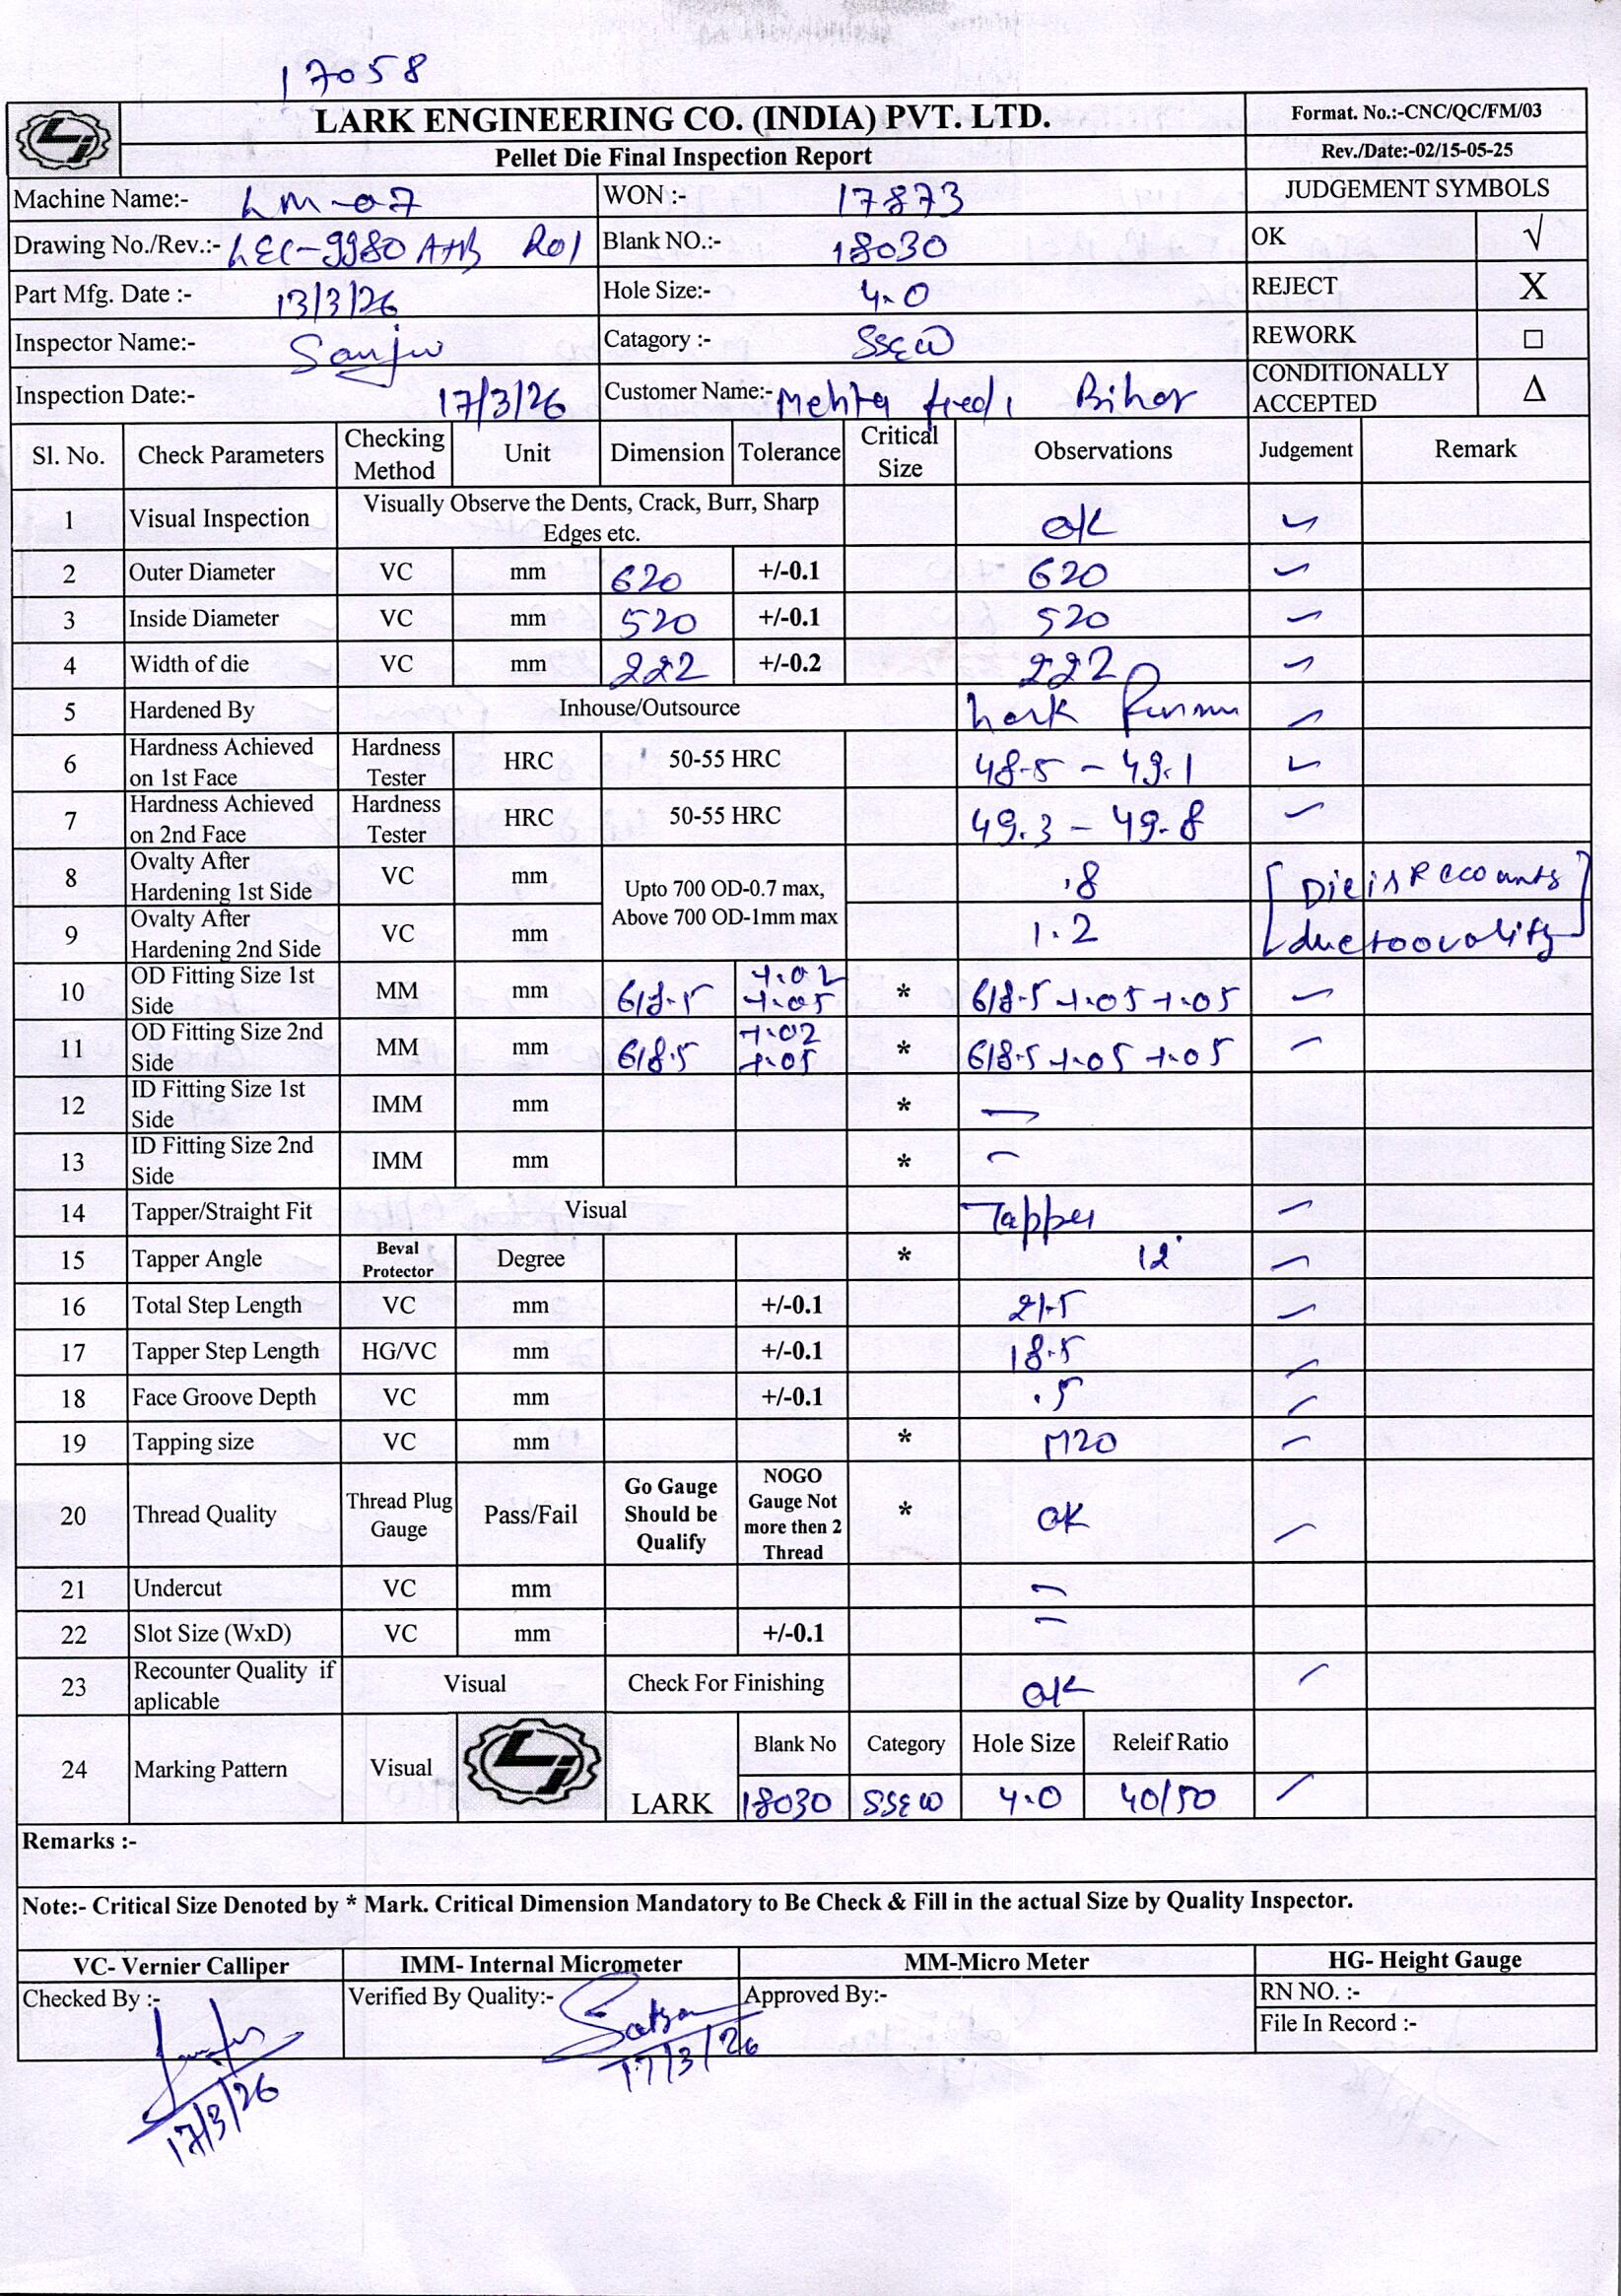 17058
LARK ENGINEERING CO. (INDIA) PVT. LTD.
Format. No.:-CNC/QC/FM/03
Pellet Die Final Inspection Report
Rev./Date:-02/15-05-25
Machine Name:- LM-07 WON :- 17873 JUDGEMENT SYMBOLS
Drawing No./Rev.:- LEC-9980 A+B R01 Blank NO.:- 18030 OK √
Part Mfg. Date :- 13/3/26 Hole Size:- 4.0 REJECT X
Inspector Name:- Sanju Catagory :- SSEW REWORK □
Inspection Date:- 17/3/26 Customer Name:- Mehta feeds Bihar CONDITIONALLY ACCEPTED Δ
Sl. No. Check Parameters Checking Method Unit Dimension Tolerance Critical Size Observations Judgement Remark
1 Visual Inspection Visually Observe the Dents, Crack, Burr, Sharp Edges etc. ok ✓
2 Outer Diameter VC mm 620 +/-0.1 620 ✓
3 Inside Diameter VC mm 520 +/-0.1 520 ✓
4 Width of die VC mm 222 +/-0.2 222 ✓
5 Hardened By Inhouse/Outsource Lark ✓
6 Hardness Achieved on 1st Face Hardness Tester HRC 50-55 HRC 48.5 - 49.1 ✓
7 Hardness Achieved on 2nd Face Hardness Tester HRC 50-55 HRC 49.3 - 49.8 ✓
8 Ovalty After Hardening 1st Side VC mm Upto 700 OD-0.7 max, Above 700 OD-1mm max .8 [Die is Recounts
9 Ovalty After Hardening 2nd Side VC mm 1.2 due to ovality]
10 OD Fitting Size 1st Side MM mm 618.5 +.02 +.05 * 618.5 +.05 +.05 ✓
11 OD Fitting Size 2nd Side MM mm 618.5 +.02 +.05 * 618.5 +.05 +.05 ✓
12 ID Fitting Size 1st Side IMM mm * —
13 ID Fitting Size 2nd Side IMM mm * —
14 Tapper/Straight Fit Visual Tapper ✓
15 Tapper Angle Beval Protector Degree * 12° ✓
16 Total Step Length VC mm +/-0.1 21.5 ✓
17 Tapper Step Length HG/VC mm +/-0.1 18.5 ✓
18 Face Groove Depth VC mm +/-0.1 .5 ✓
19 Tapping size VC mm * M20 ✓
20 Thread Quality Thread Plug Gauge Pass/Fail Go Gauge Should be Qualify NOGO Gauge Not more then 2 Thread * OK ✓
21 Undercut VC mm —
22 Slot Size (WxD) VC mm +/-0.1 —
23 Recounter Quality if aplicable Visual Check For Finishing ok ✓
24 Marking Pattern Visual LARK Blank No Category Hole Size Releif Ratio
18030 SSEW 4.0 40/50 ✓
Remarks :-
Note:- Critical Size Denoted by * Mark. Critical Dimension Mandatory to Be Check & Fill in the actual Size by Quality Inspector.
VC- Vernier Calliper IMM- Internal Micrometer MM-Micro Meter HG- Height Gauge
Checked By :- Verified By Quality:- Approved By:- RN NO. :-
File In Record :-
17/3/26 17/3/26